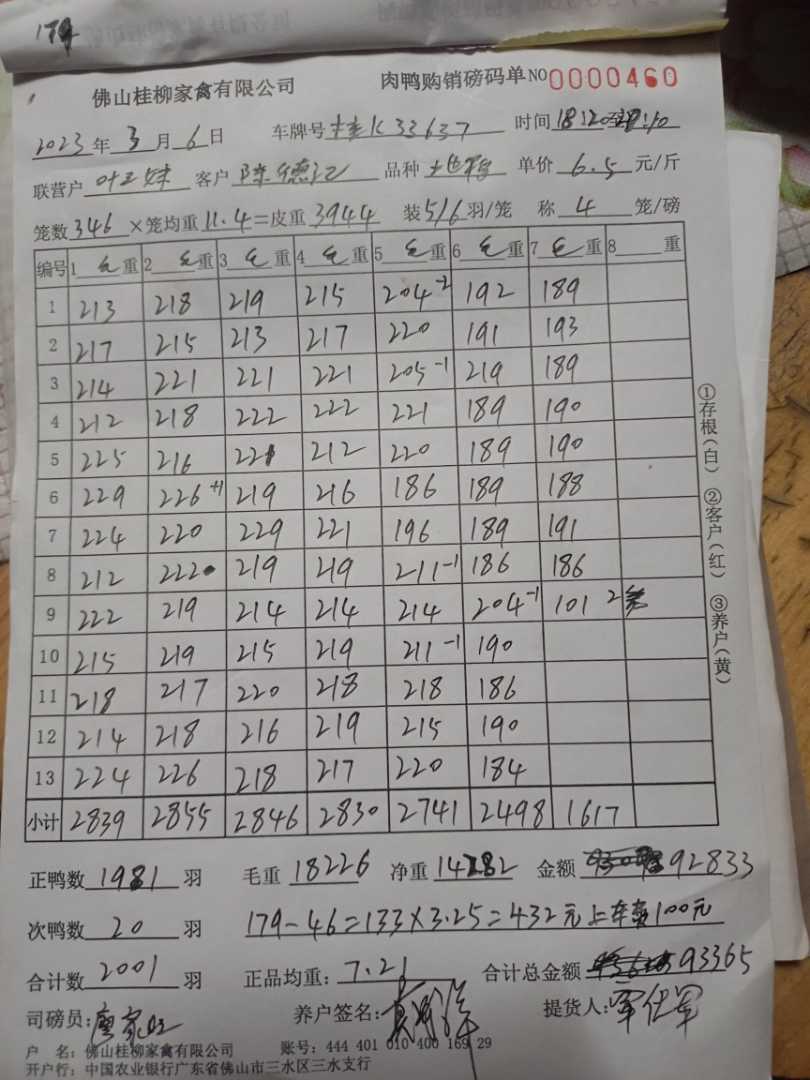 179
佛山桂柳家禽有限公司 肉鸭购销磅码单 NO 0000460
2023年3月6日 车牌号 桂K33637 时间 18:20
联营户 叶王妹 客户 陈德记 品种 单价 6.5 元/斤
笼数 346 ×笼均重 11.4 =皮重 3944 装 5/6 羽/笼 称 4 笼/磅
编号 1 毛 重 2 毛 重 3 毛 重 4 毛 重 5 毛 重 6 毛 重 7 毛 重 8 重
1 213 218 219 215 204 -2 192 189
2 217 215 213 217 220 191 193
3 214 221 221 221 205 -1 219 189
4 212 218 222 222 221 189 190
5 225 216 221 212 220 189 190
6 229 226 +1 219 216 186 189 188
7 224 220 229 221 196 189 191
8 212 222 219 219 211 -1 186 186
9 222 219 214 214 214 204 -1 101 2笼
10 215 219 215 219 211 -1 190
11 218 217 220 218 218 186
12 214 218 216 219 215 190
13 224 226 218 217 220 184
小计 2839 2855 2846 2830 2741 2498 1617
正鸭数 1981 羽 毛重 18226 净重 14282 金额 92833
次鸭数 20 羽 179-46=133×3.25=432元 上车费100元
合计数 2001 羽 正品均重: 7.21 合计总金额 93365
司磅员: 养户签名: 提货人:
户 名: 佛山桂柳家禽有限公司 账号: 444 401 010 400 169 29
开户行: 中国农业银行广东省佛山市三水区三水支行
①存根(白) ②客户(红) ③养户(黄)